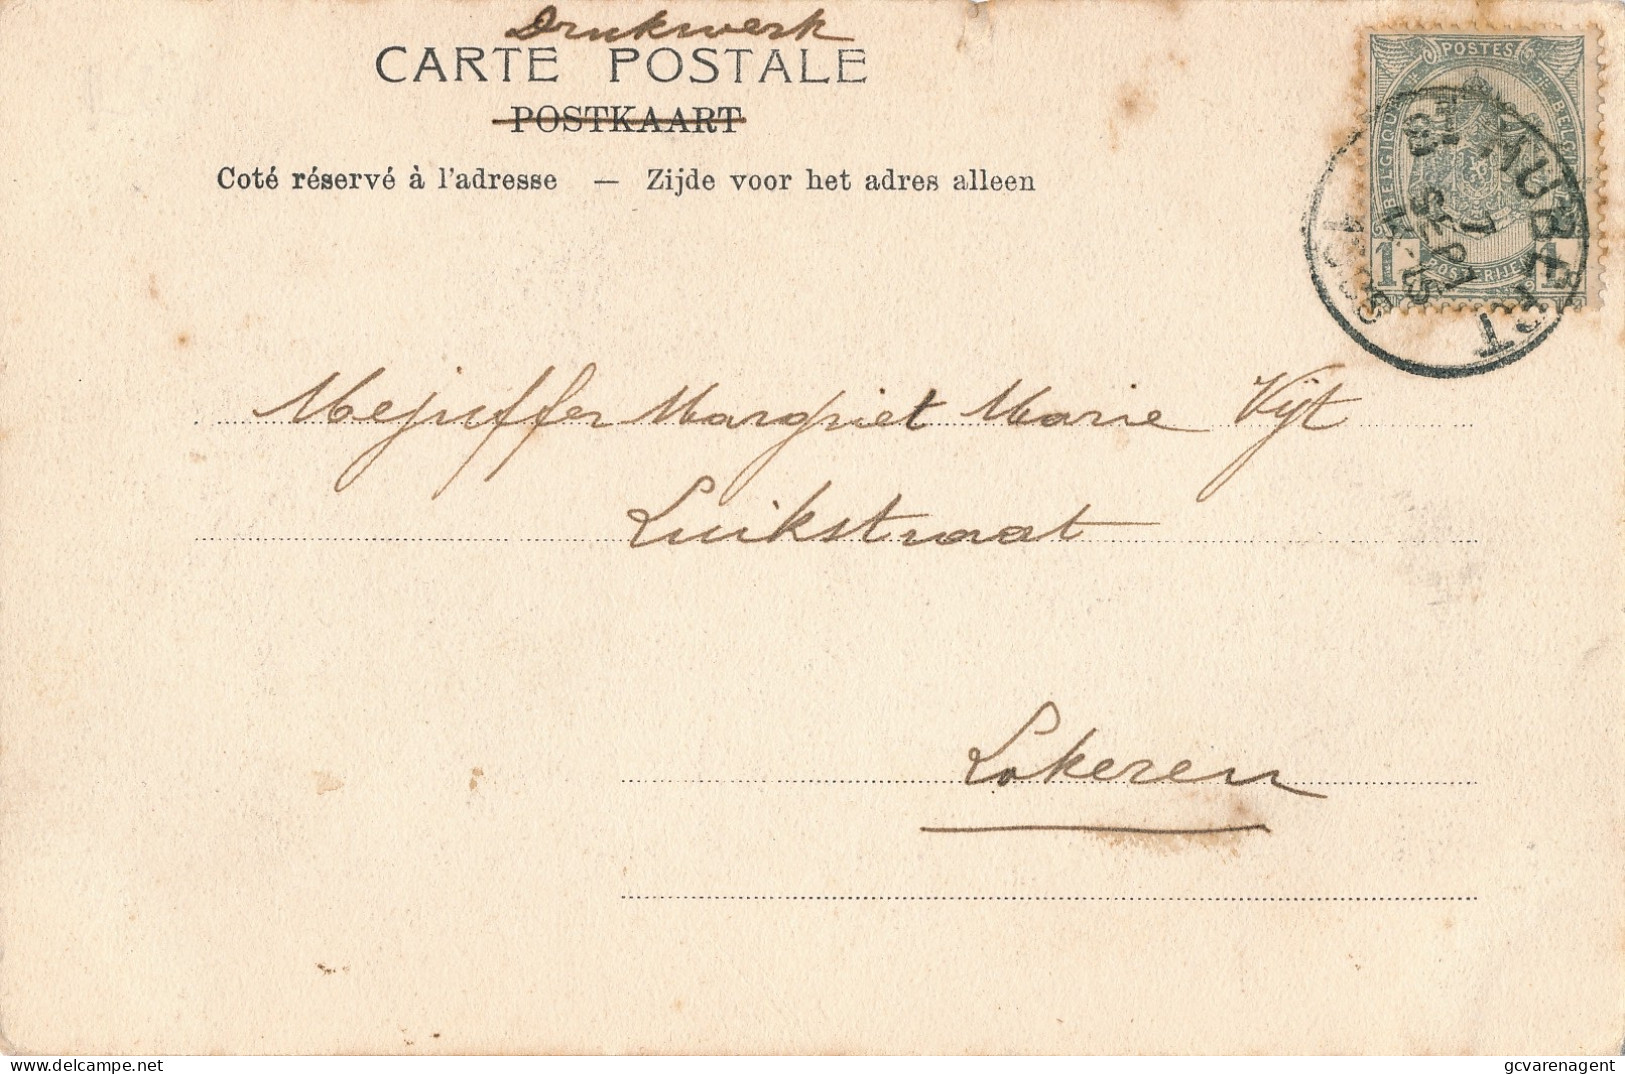 Drukwerk
CARTE POSTALE
POSTKAART
Coté réservé à l'adresse — Zijde voor het adres alleen
POSTES
BELGIQUE
1 1
ST HUBERT
7 SEPT
Mejuffer Margriet Marie Vijt
Luikstraat
Lokeren
delcampe.net
gcvarenagent